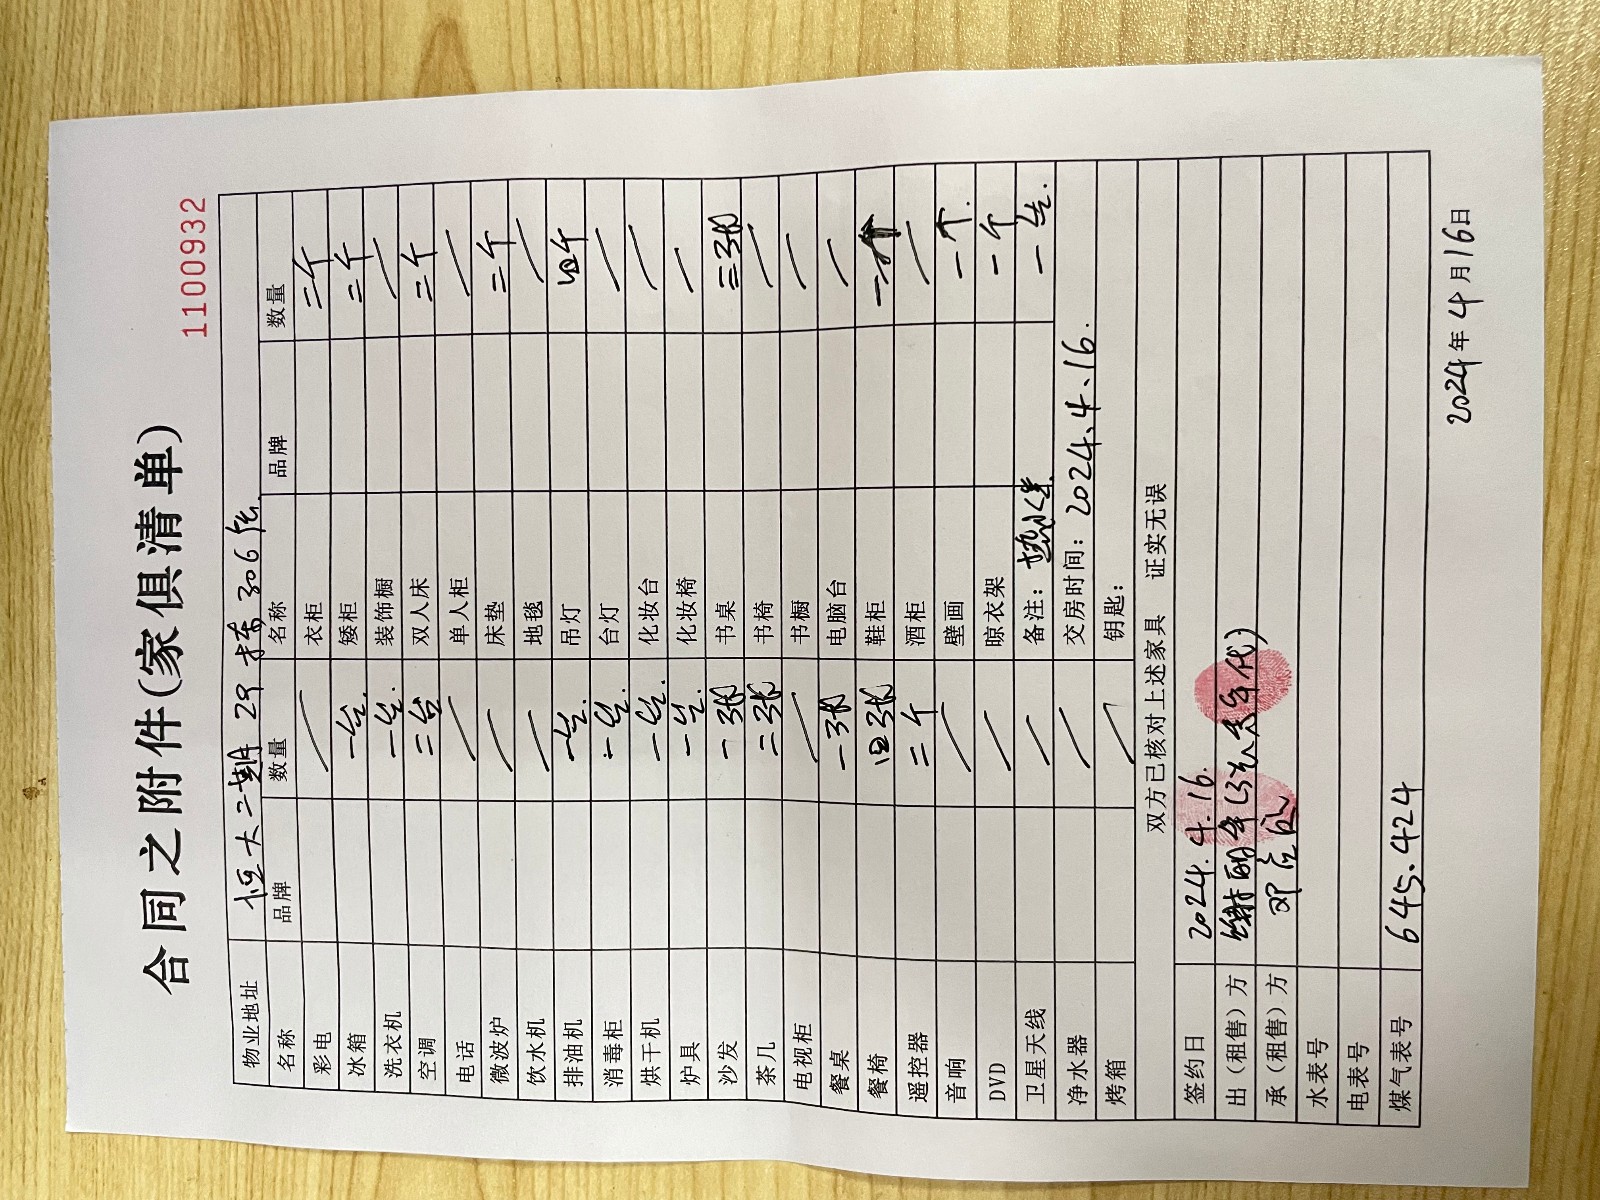 1100932
合同之附件(家俱清单)
物业地址 恒大二期 29栋306房.
名称 品牌 数量 名称 品牌 数量
彩电 / 衣柜 二个
冰箱 一台. 矮柜 二个
洗衣机 一台. 装饰橱 /
空调 二台 双人床 二个
电话 / 单人柜 /
微波炉 / 床垫 二个
饮水机 / 地毯 /
排油机 一台. 吊灯 四个
消毒柜 一台. 台灯 /
烘干机 一台. 化妆台 /
炉具 一台. 化妆椅 /
沙发 一张 书桌 三张
茶几 二张 书椅 /
电视柜 / 书橱 /
餐桌 一张 电脑台 /
餐椅 四张 鞋柜 一个
遥控器 二个 酒柜 /
音响 / 壁画 一个.
DVD / 晾衣架 一个
卫星天线 / 备注: 热水器 一台.
净水器 / 交房时间: 2024.4.16.
烤箱 / 钥匙:
双方已核对上述家具 证实无误
签约日 2024.4.16.
出(租售)方 谢丽 代)
承(租售)方 邓
水表号
电表号
煤气表号 645.424
2024年4月16日